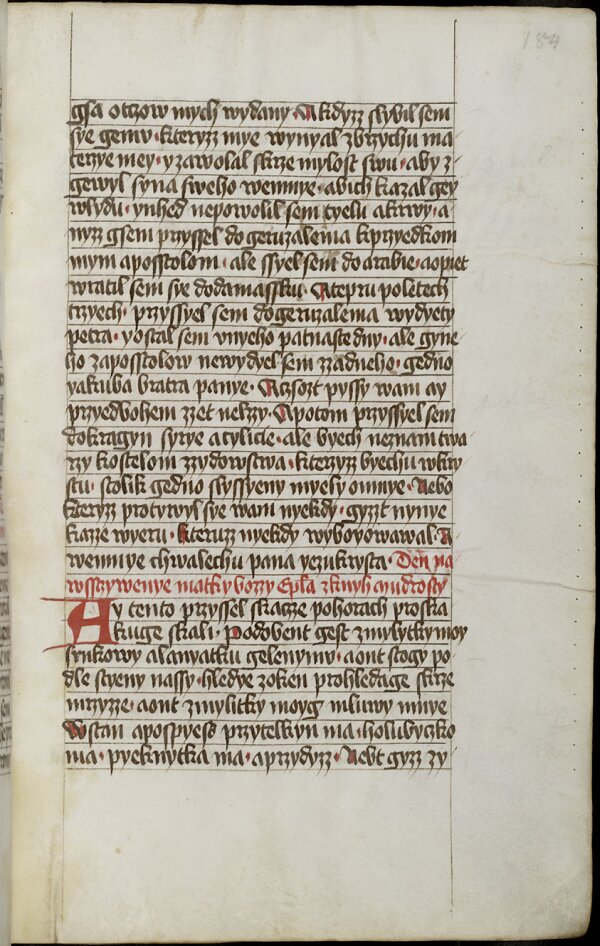 184
gsa otzow mych wydany · A kdyzz slybil sem
sye gemv · kteryzz mye wynyal zbrzychu ma
terzye mey · y zawolal skrze mylost swu · aby z
gewyl syna sweho wemnye · abich kazal gey
wlydu · ynhed nepowolil sem tyelu akrwy · a
nyzz gsem przyssel do geruzalema kprzyedkom
mym aposstolom · ale ssyel sem do arabie · aopiet
wratil sem sye dodamassku · Atepru poletech
trzyech · przyssyel sem dogeruzalema wydyety
petra · yostal sem vnyeho patnastedny · ale gyne
ho zaposstolow newydyel sem zzadneho · gedno
yakuba bratra panye · Atozt pyssy wam ay
przyedbohem zzet nelzzy · Apotom przyssyel sem
dokragyn syrye acylicie · ale byech neznam twa
rzy kostelom zzydowstwa · kterzyzz byechu wkry
stu · stolik gedno slyssyeny myely omnye · Nebo
kteryzz protywyl sye wam nyekdy · gyzzt nynye
kazze wyeru · kteruzz nyekdy wyboyowawal · A
wemnye chwalechu pana yezukrysta · Den na
wsszywenye matky bozzy Epla zknyh mudrosty
Ay tento przyssel skacze pohorach proska
kuge skali · Podobent gest zmylytky moy
srnkowy alanyatku gelenymv · aont stogy po
dle styeny nassy · hledye zoken prohledage skrze
mrzyzze · aont zmylitky moyg mluwy mnye
Wstan apospyess przytelkyn ma · holubyczko
ma · pyeknytka ma · aprzydyzz · Nebt gyzz zy